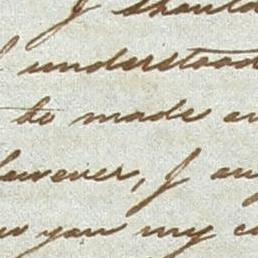 I should
understood
be made
however, I
you my